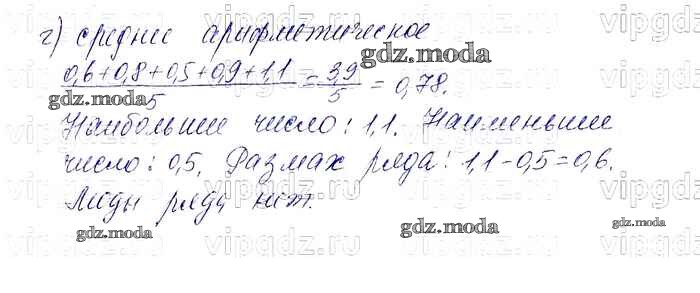 г) среднее арифметическое
0,6+0,8+0,5+0,9+1,1 / 5 = 3,9 / 5 = 0,78.
Наибольшее число: 1,1. Наименьшее
число: 0,5. Размах ряда: 1,1-0,5=0,6.
Моды ряда нет.
gdz.moscow
gdz.moscow
gdz.moscow
gdz.moscow
gdz.moscow
vipgdz.ru
vipgdz.ru
vipgdz.ru
vipgdz.ru